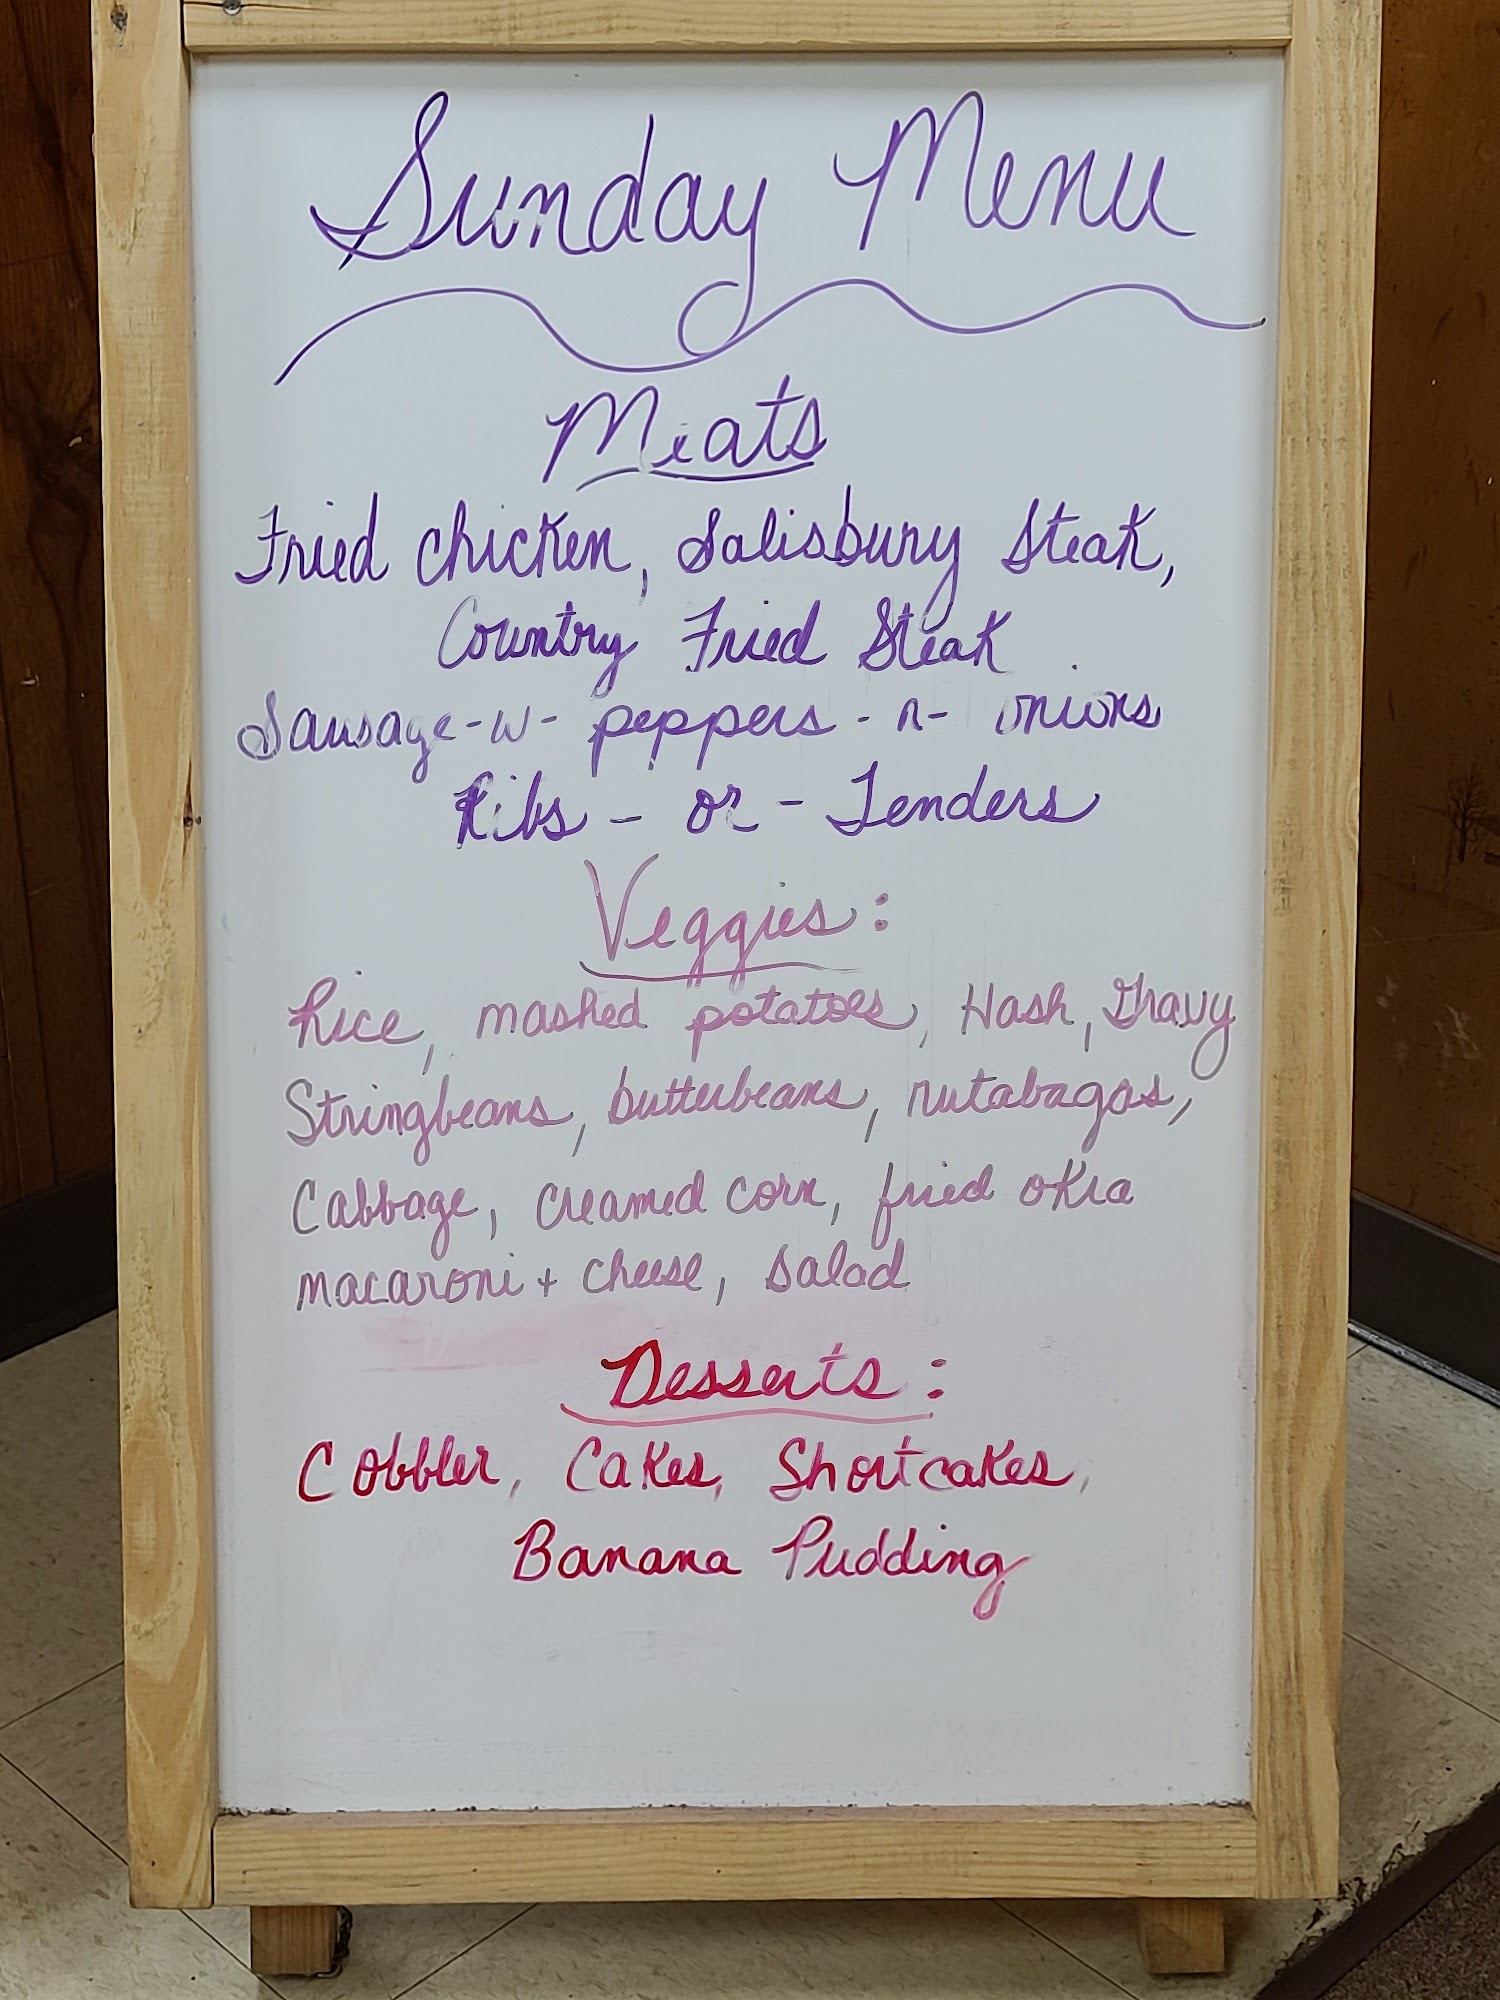 Sunday Menu
Meats
Fried chicken, Salisbury Steak,
Country Fried Steak
Sausage -w- peppers -n- onions
Ribs - or - Tenders
Veggies:
Rice, mashed potatoes, Hash, Gravy
Stringbeans, butterbeans, rutabagas,
Cabbage, creamed corn, fried okra
macaroni + cheese, salad
Desserts:
Cobbler, Cakes, Shortcakes,
Banana Pudding